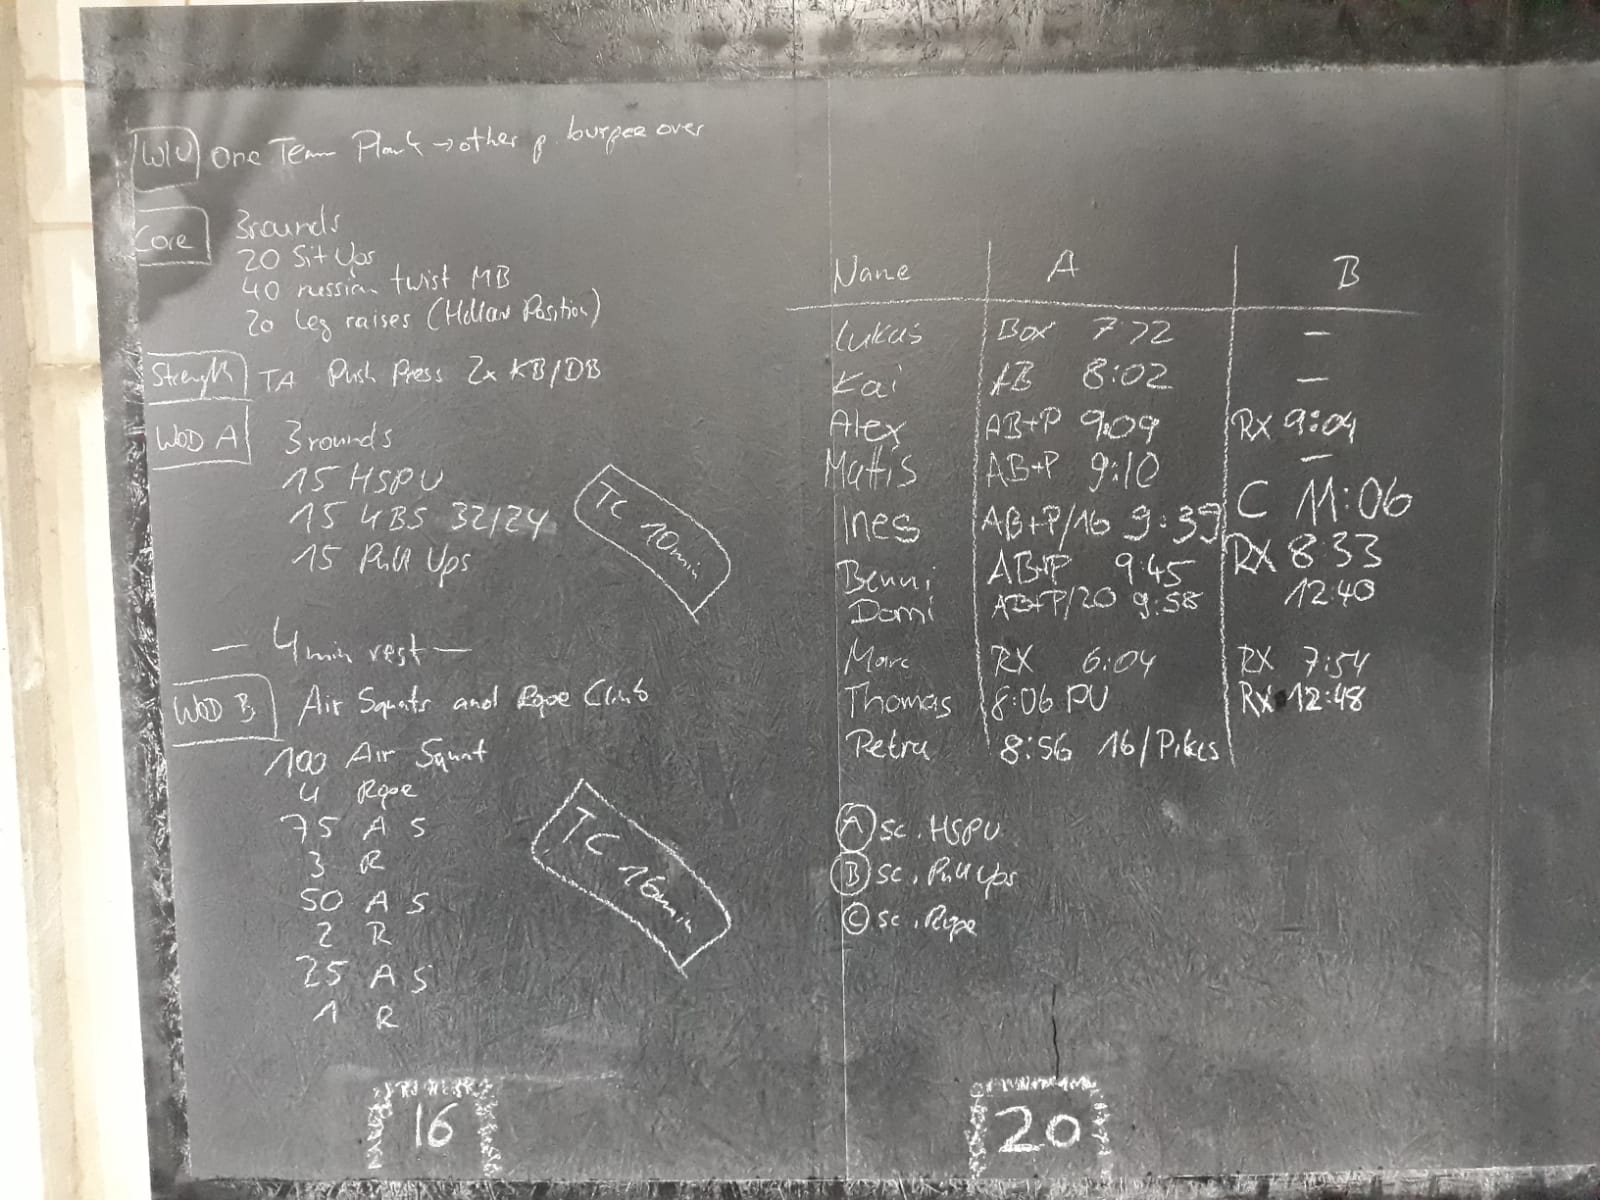 W/U One Team Plank → other p. burpee over
Core 3rounds
20 Sit Ups
40 russian twist MB
20 leg raises (Hollow Position)
Strength TA Push Press 2x KB/DB
WOD A 3rounds
15 HSPU
15 KBS 32/24
15 Pull Ups
TC 10min
— 4min rest —
WOD B Air Squats and Rope Climb
100 Air Squat
4 Rope
75 A S
3 R
50 A S
2 R
25 A S
1 R
TC 16min
16
Name A B
Lukas Box 7:22 —
Kai AB 8:02 —
Alex AB+P 9:09 RX 9:04
Mattis AB+P 9:10 —
Ines AB+P/16 9:39 C 11:06
Benni AB+P 9:45 RX 8:33
Domi AB+P/20 9:58 12:40
Marc RX 6:04 RX 7:54
Thomas 8:06 PU RX 12:48
Petra 8:56 16/Pikes
A sc. HSPU
B sc. Pull Ups
C sc. Rope
20